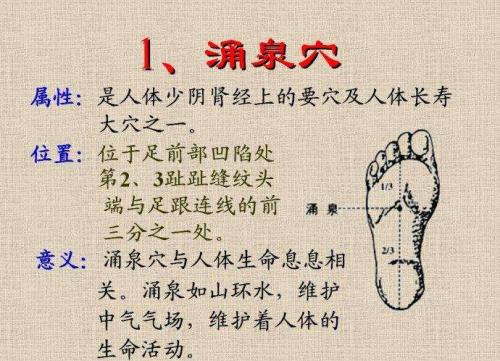 1、涌泉穴
属性：是人体少阴肾经上的要穴及人体长寿
大穴之一。
位置：位于足前部凹陷处
第2、3趾趾缝纹头
端与足跟连线的前
三分之一处。
意义：涌泉穴与人体生命息息相
关。涌泉如山环水，维护
中气气场，维护着人体的
生命活动。
1/3
涌泉
2/3